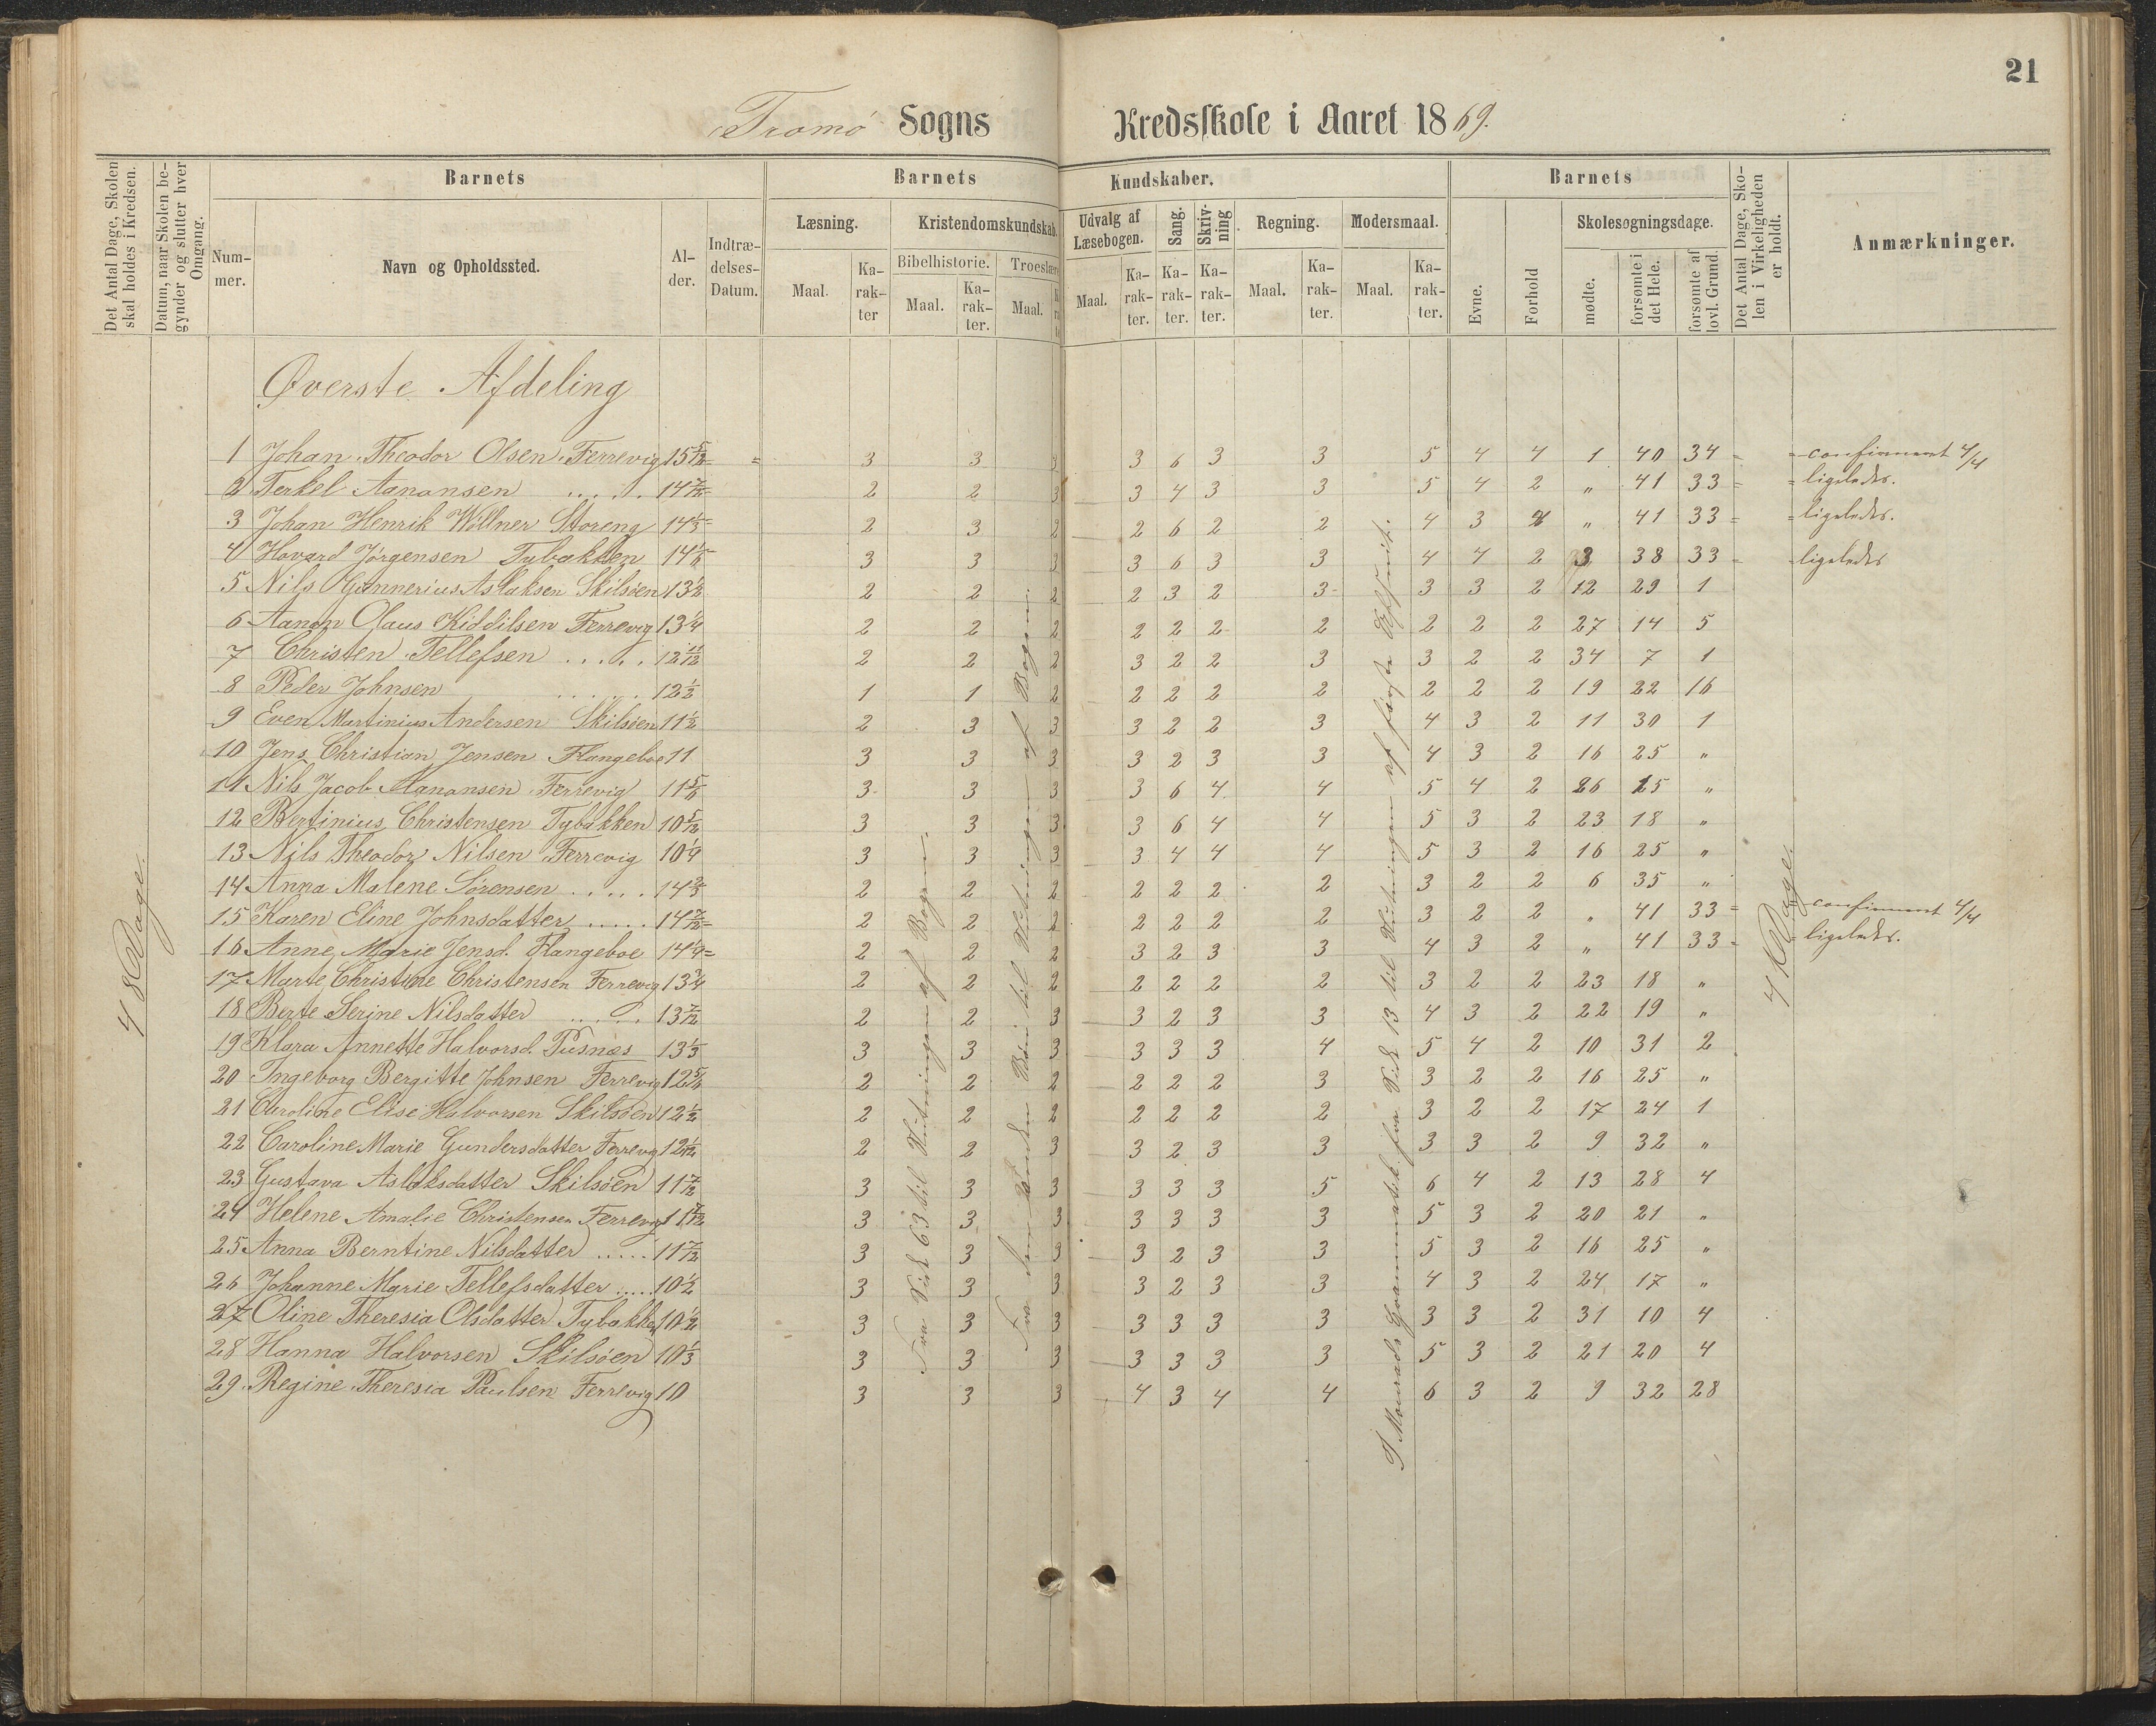 21
Tromø Sogns Kredsskole i Aaret 1869.
Det Antal Dage, Skolen skal holdes i Kredsen.
Datum, naar Skolen begynder og slutter hver Omgang.
Barnets
Nummer.
Navn og Opholdssted.
Alder.
Indtrædelses-Datum.
Barnets Kundskaber.
Læsning.
Maal. Karakter
Kristendomskundskab.
Bibelhistorie.
Maal. Karakter.
Troeslære
Maal.
Udvalg af Læsebogen.
Maal. Karakter.
Sang. Karakter.
Skrivning Karakter.
Regning.
Maal. Karakter.
Modersmaal.
Maal. Karakter.
Barnets
Evne.
Forhold
Skolesøgningsdage.
mødte.
forsømte i det Hele.
forsømte af lovl. Grund.
Det Antal Dage, Skolen i Virkeligheden er holdt.
Anmærkninger.
Øverste Afdeling
1 Johan Theodor Olsen Ferrevig 15 5/12 = 3 3 3 3 6 3 3 5 4 4 1 40 34 = confirmeret 4/4
2 Terkel Aanonsen ..... 14 7/12 2 2 3 3 4 3 3 5 4 2 " 41 33 = ligeledes.
3 Johan Henrik Wöllner Storeng 14 1/3 2 3 2 2 6 2 2 4 3 2 " 41 33 = ligeledes.
4 Hovard Jörgensen Tybakken 14 1/6 3 3 3 3 6 3 3 4 4 2 3 38 33 = ligeledes
5 Nils Gunnerius Aslaksen Skilsöen 13 1/2 2 2 2 2 3 2 3 3 3 2 12 29 1
6 Aanon Olaus Kiddilsen Ferrevig 13 1/4 2 2 2 2 2 2 2 2 2 2 27 14 5
7 Christen Tellefsen ..... 12 11/12 2 2 2 3 2 2 3 3 2 2 34 7 1
8 Peder Johnsen ...... 12 1/2 1 1 2 2 2 2 2 2 2 2 19 22 16
9 Even Martinius Andersen Skilsöen 11 1/2 2 3 3 3 2 2 3 4 3 2 11 30 1
10 Jens Christian Jensen Flangeboe 11 3 3 3 3 2 3 3 4 3 2 16 25 "
11 Nils Jacob Aanonsen Ferrevig 11 5/6 3 3 3 3 6 4 4 5 4 2 26 15 "
12 Bertinius Christensen Tybakken 10 5/12 3 3 3 3 6 4 4 5 3 2 23 18 "
13 Nils Theodor Nilsen Ferrevig 10 1/4 3 3 3 3 4 4 4 5 3 2 16 25 "
14 Anna Malene Sörensen ..... 14 2/3 2 2 2 2 2 2 2 3 2 2 6 35 "
15 Karen Eline Johnsdatter ..... 14 7/12 = 2 2 2 2 2 2 2 3 2 2 " 41 33 = confirmeret 4/4
16 Anne Marie Jensd. Flangeboe 14 1/4 = 2 2 2 3 2 3 3 4 3 2 " 41 33 = ligeledes.
17 Marte Christine Christensen Ferrevig 13 3/4 2 2 2 2 2 2 2 3 2 2 23 18 "
18 Berte Serine Nilsdatter ..... 13 7/12 2 2 3 3 2 3 3 4 3 2 22 19 "
19 Klara Annette Halvorsd. Pusnæs 13 1/3 3 3 3 3 3 3 4 5 4 2 10 31 2
20 Ingeborg Bergitte Johnsen Ferrevig 12 5/6 2 2 2 2 2 2 3 3 2 2 16 25 "
21 Caroline Elise Halvorsen Skilsöen 12 1/2 2 2 2 2 2 2 2 3 2 2 17 24 1
22 Caroline Marie Gundersdatter Ferrevig 12 1/12 2 2 3 3 2 3 3 3 3 2 9 32 "
23 Gustava Aslaksdatter Skilsöen 11 7/12 3 3 3 3 3 3 5 6 4 2 13 28 4
24 Helene Amalie Christensen Ferrevig 11 7/12 3 3 3 3 3 3 3 5 3 2 20 21 "
25 Anna Berntine Nilsdatter ..... 11 7/12 3 3 3 3 2 3 3 5 3 2 16 25 "
26 Johanne Marie Tellefsdatter ..... 10 1/2 3 3 3 3 2 3 3 4 3 2 24 17 "
27 Oline Theresia Olsdatter Tybakken 10 1/2 3 3 3 3 3 3 3 3 3 2 31 10 4
28 Hanna Halvorsen Skilsöen 10 1/3 3 3 3 3 3 3 3 5 3 2 21 20 4
29. Regine Theresia Paulsen Ferrevig 10 3 3 3 4 3 4 4 6 3 2 9 32 28
48 Dage.
Fra Side 63 til Slutningen af Bogen.
Bön til Slutningen af Bogen.
Grammatik fra Side 13 til Slutningen af förste Afsnit.
41 Dage.